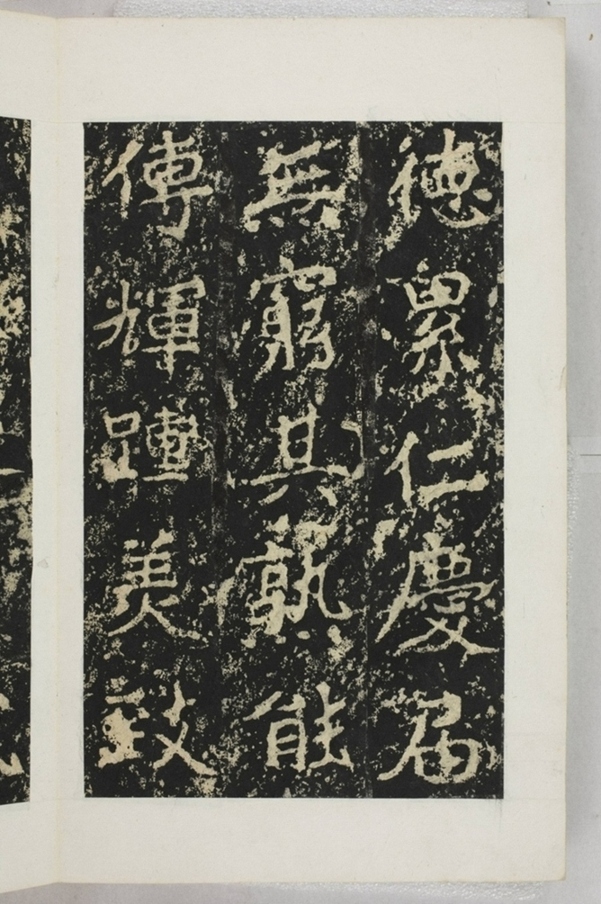 德累仁慶届
無窮其孰能
傳輝踵美致